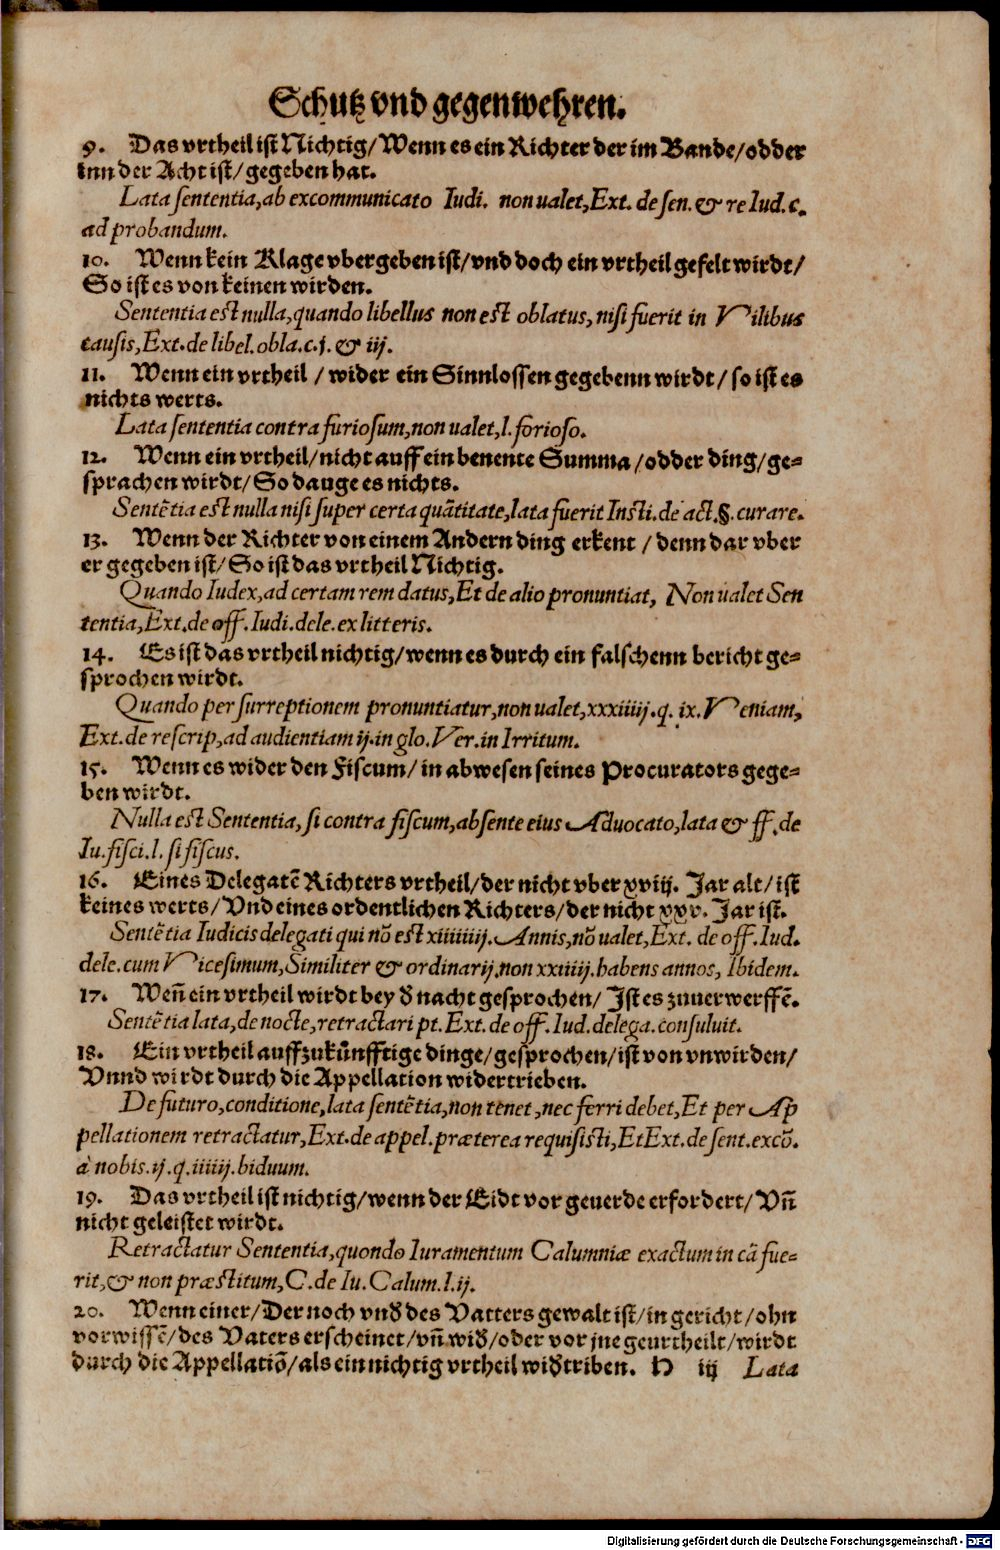 Schutz vnd gegenwehren.
9. Das vrtheil ist Nichtig/ Wenn es ein Richter der im Bande/ odder
inn der Acht ist/ gegeben hat.
Lata sententia, ab excommunicato Iudi. non ualet, Ext. de sen. & re Iud. c.
ad probandum.
10. Wenn kein Klage vbergeben ist/ vnd doch ein vrtheil gefelt wirdt/
So ist es von keinen wirden.
Sententia est nulla, quando libellus non est oblatus, nisi fuerit in Vilibus
causis, Ext. de libel. obla. c. j. & iij.
11. Wenn ein vrtheil / wider ein Sinnlossen gegebenn wirdt/ so ist es
nichts werts.
Lata sententia contra furiosum, non ualet, l. forioso.
12. Wenn ein vrtheil/ nicht auff ein benente Summa/ odder ding/ ge-
sprachen wirdt/ So dauge es nichts.
Sentētia est nulla nisi super certa quātitate, lata fuerit Insti. de act. §. curare.
13. Wenn der Richter von einem Andern ding erkent / denn dar vber
er gegeben ist/ So ist das vrtheil Nichtig.
Quando Iudex, ad certam rem datus, Et de alio pronuntiat, Non ualet Sen
tentia, Ext. de off. Iudi. dele. ex litteris.
14. Es ist das vrtheil nichtig/ wenn es durch ein falschenn bericht ge-
sprochen wirdt.
Quando per surreptionem pronuntiatur, non ualet, xxxiiiij. q. ix. Veniam,
Ext. de rescrip, ad audientiam ij. in glo. Ver. in Irritum.
15. Wenn es wider den Fiscum/ in abwesen seines Procurators gege-
ben wirdt.
Nulla est Sententia, si contra fiscum, absente eius Aduocato, lata & ff. de
Iu. fisci. l. si fiscus.
16. Eines Delegatē Richters vrtheil/ der nicht vber xviij. Jar alt/ ist
keines werts/ Vnd eines ordentlichen Richters/ der nicht xxv. Jar ist.
Sentētia Iudicis delegati qui nō est xiiiiiiij. Annis, nō ualet, Ext. de off. Iud.
dele. cum Vicesimum, Similiter & ordinarij, non xxiiiij. habens annos, Ibidem.
17. Weñ ein vrtheil wirdt bey d̕ nacht gesprochen/ Ist es zuuerwerffē.
Sentētia lata, de nocte, retractari pt. Ext. de off. Iud. delega. consuluit.
18. Ein vrtheil auff zukünfftige dinge/ gesprochen/ ist von vnwirden/
Vnnd wirdt durch die Appellation widertrieben.
De futuro, conditione, lata sentētia, non tenet, nec ferri debet, Et per Ap
pellationem retractatur, Ext. de appel. præterea requisisti, Et Ext. de sent. excō.
à nobis. ij. q. iiiiij. biduum.
19. Das vrtheil ist nichtig/ wenn der Eidt vor geuerde erfordert/ Vñ
nicht geleistet wirdt.
Retractatur Sententia, quondo Iuramentum Calumniæ exactum in cā fue-
rit, & non præstitum, C. de Iu. Calum. l. ij.
20. Wenn einer/ Der noch vnd̕ des Vatters gewalt ist/ in gericht/ ohn
vorwissē/ des Vaters erscheinet/ vñ wid̕/ oder vor jne geurtheilt/ wirdt
durch die Appellatiō/ als ein nichtig vrtheil wid̕triben. H iij Lata
Digitalisierung gefördert durch die Deutsche Forschungsgemeinschaft - DFG